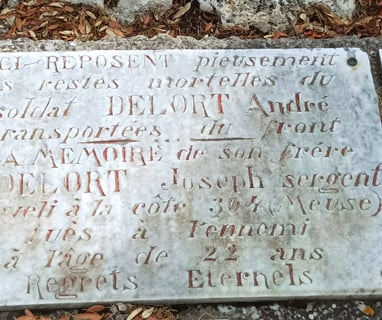 CI-REPOSENT pieusement
s restes mortelles du
soldat DELORT André
ransportées du front
A MEMOIRE de son frére
DELORT Joseph sergent
à la côte 304 (Meuse)
à l'ennemi
à l'âge de 22 ans
Regrets Eternels